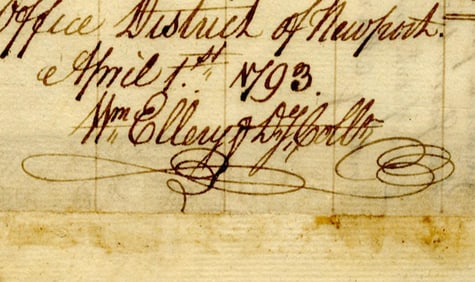 Office District of Newport.
April 1st. 1793.
Wm Ellery